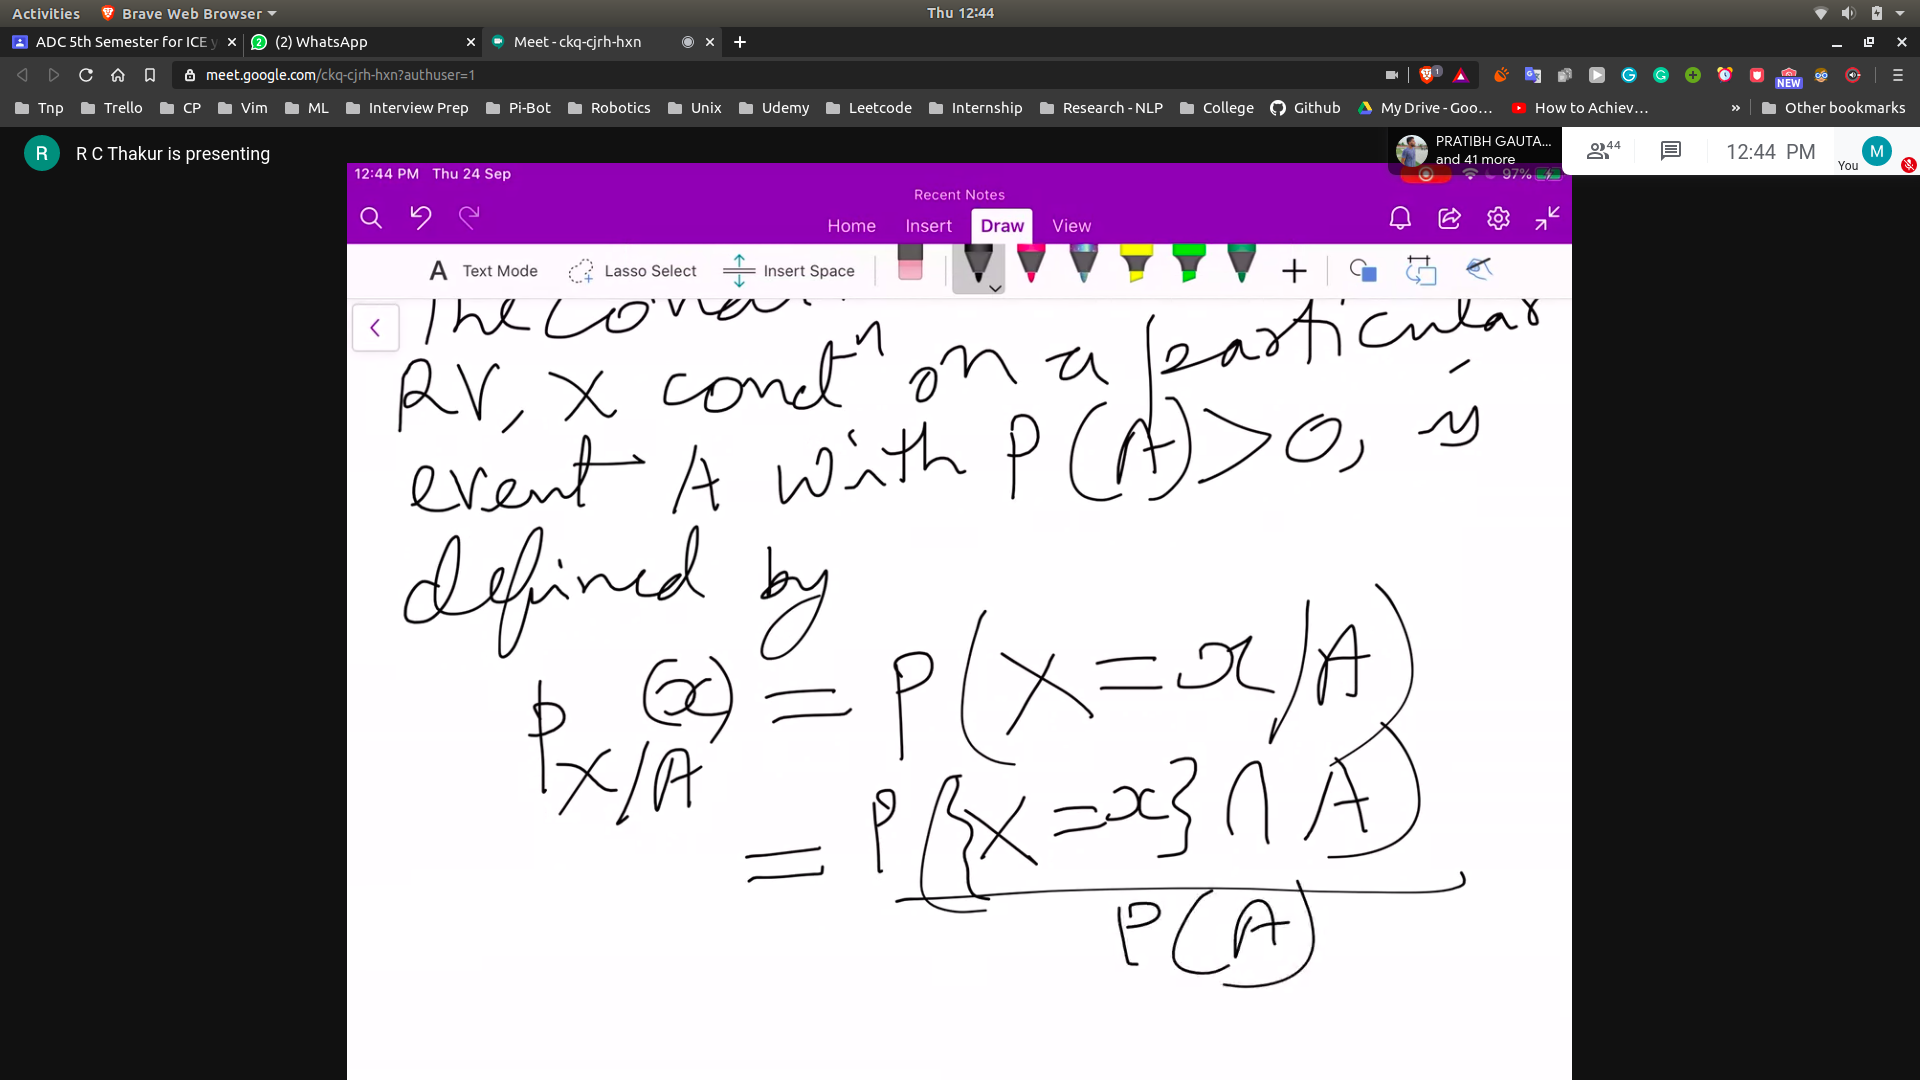 Activities Brave Web Browser Thu 12:44
ADC 5th Semester for ICE y (2) WhatsApp Meet - ckq-cjrh-hxn
meet.google.com/ckq-cjrh-hxn?authuser=1 1 NEW
Tnp Trello CP Vim ML Interview Prep Pi-Bot Robotics Unix Udemy Leetcode Internship Research - NLP College Github My Drive - Goo... How to Achiev... » Other bookmarks
R R C Thakur is presenting
PRATIBH GAUTA...
and 41 more
44 12:44 PM You M
12:44 PM Thu 24 Sep 97%
Recent Notes
Home Insert Draw View
A Text Mode Lasso Select Insert Space
The
RV, X condtⁿ on a particular
event A with P(A)>0, is
defined by
P_X/A (x) = P(X=x/A)
= P({X=x}∩A)
P(A)